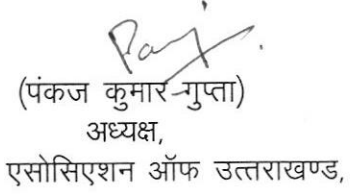 (पंकज कुमार गुप्ता)
अध्यक्ष,
एसोसिएशन ऑफ उत्तराखण्ड,